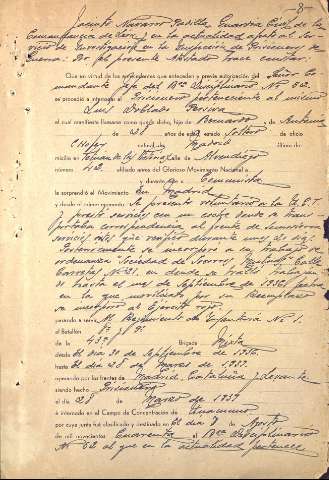 -8-
Jacinto Navarro Padilla Guardia Civil de la
Comandancia de y en la actualidad afecto al Ser-
vicio de Investigación en la Inspección de Prisioneros de
Guerra: Por el presente Atestado hace constar:
Que en virtud de los antecedentes que anteceden y previa autorización del Señor Co-
mandante Jefe del Bón Disciplinario Nº 602.
se procedió a interrogar al Prisionero perteneciente al mismo
Luis Doblado Pereira
el cual manifiesta llamarse como queda dicho, hijo de Bernardo y de Antonia
de 28 años de edad, estado Soltero de oficio
Chofer natural de Madrid último do-
micilio en Calle de
número 42 afiliado antes del Glorioso Movimiento Nacional a
y durante él a Comunista
le sorprendió el Movimiento En Madrid
y desde el mismo ingresó. Se presentó voluntario a la C.G.T.
y prestó servicios con un coche donde se trans-
portaba correspondencia al frente de Somosierra
servicio este, que realizó durante unos días
Posteriormente se incorporó a su trabajo de
ordenanza Sociedad de Socorros Mutuos Calle
Carretas Nº 21. en donde se trabajan-
do hasta el mes de Septiembre de 1936, fecha
en la que movilizado por su Reemplazo
se incorporó al Ejército rojo.
pasando a servir Al Regimiento de Infantería Nº 1.
el Batallón
de la 43ª Brigada Mixta
desde el día 30 de Septiembre de 1936.
hasta el día 28 de Marzo de 1939.
operando por los frentes de Madrid, Cataluña y Levante
siendo hecho Prisionero
el día 28 de Marzo de 1939
e internado en el Campo de Concentración de
por cuya junta fué clasificado y destinado en el día 8 de Agosto
de mil novecientos Cuarenta al Bón Disciplinario
Nº 62 al que en la actualidad pertenece